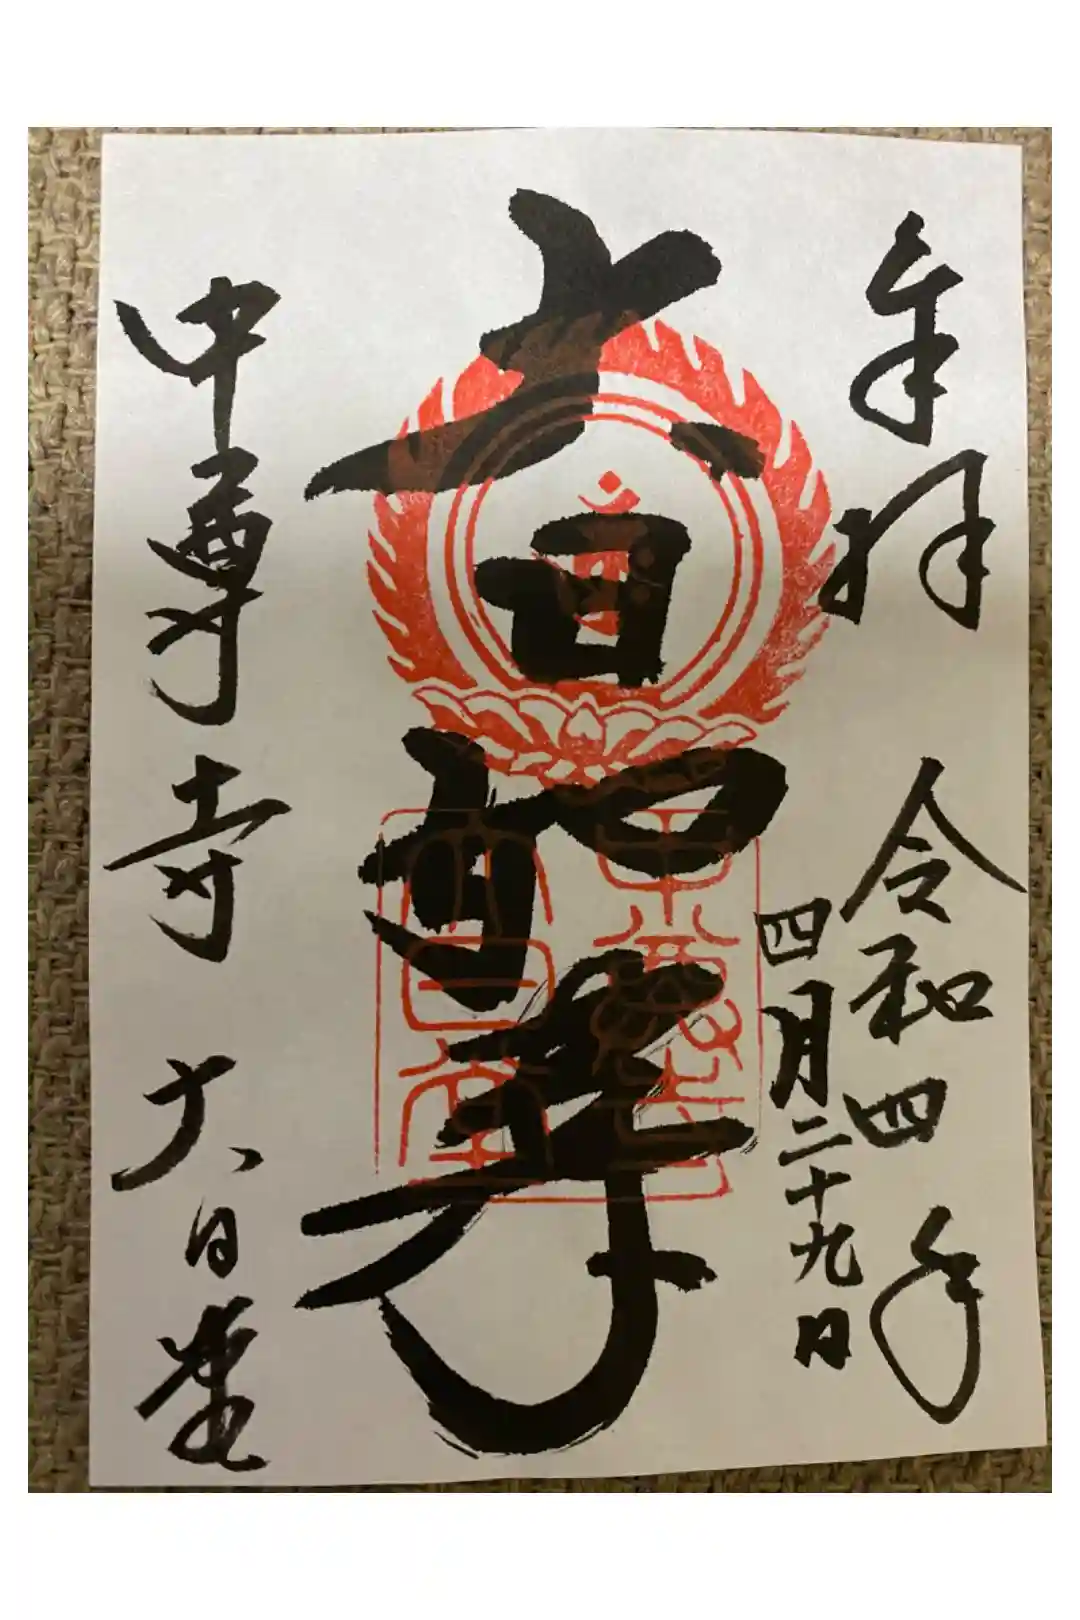 奉拝
令和四年
四月二十九日
大日如尊
中尊寺
大日堂